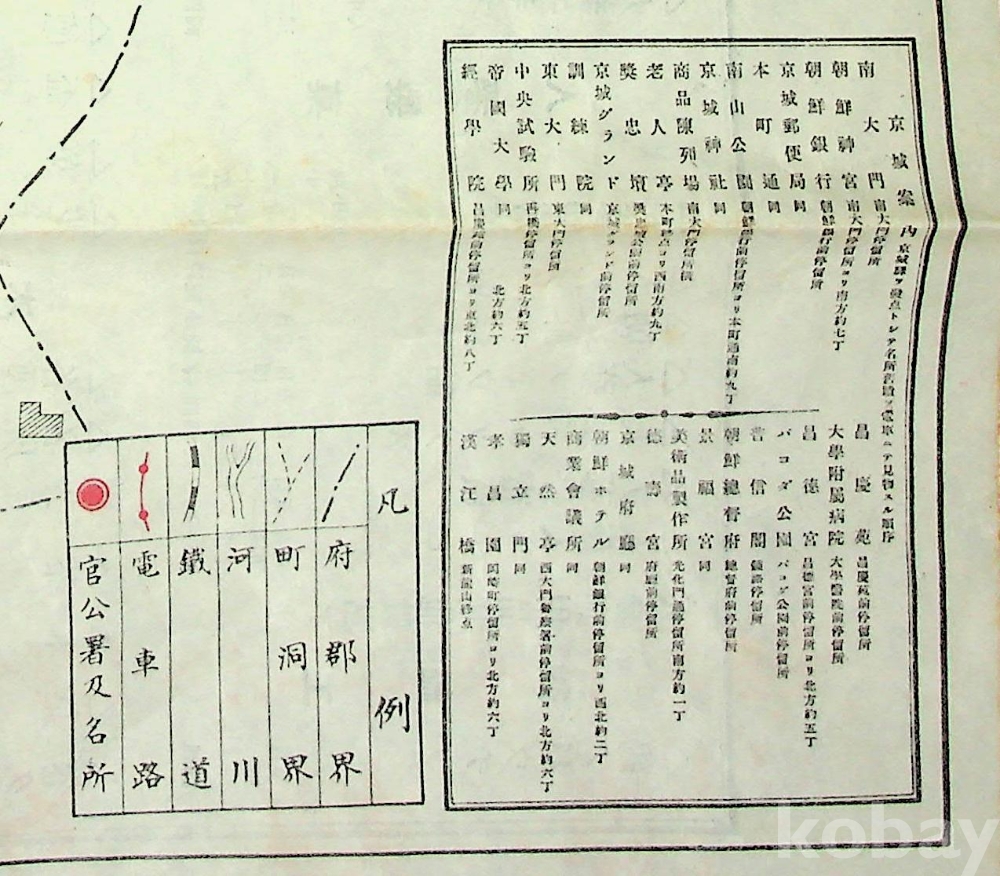 京城案内 京城驛ヲ發点トシテ名所舊蹟ヲ電車ニテ見物スル順序
南大門 南大門停留所
朝鮮神宮 南大門停留所ヨリ南方約七丁
朝鮮銀行 朝鮮銀行前停留所
京城郵便局 同
本町通 同
南山公園 朝鮮銀行前停留所ヨリ本町通南約九丁
京城神社 同
商品陳列場 南大門停留所
老人亭 本町終点ヨリ西南方約九丁
奬忠壇 奬忠壇公園前停留所
京城グランド 京城グランド前停留所
訓練院 同
東大門 東大門停留所
中央試驗所 停留所ヨリ北方約五丁
帝國大學 同 北方約六丁
經學院 昌慶苑前停留所ヨリ東北約八丁
昌慶苑 昌慶苑前停留所
大學附屬病院 大學醫院前停留所
昌德宮 昌德宮前停留所ヨリ北方約五丁
パコダ公園 パコダ公園前停留所
普信閣 鍾路停留所
朝鮮總督府 總督府前停留所
景福宮 同
美術品製作所 光化門通停留所南方約一丁
德壽宮 府廳前停留所
京城府廳 同
朝鮮ホテル 朝鮮銀行前停留所ヨリ西北約二丁
商業會議所 同
天然亭 西大門警察署前停留所ヨリ北方約六丁
獨立門 同
孝昌園 岡崎町停留所ヨリ北方約六丁
漢江橋 新龍山終点
凡例
府郡界
町洞界
河川
鐵道
電車路
官公署及名所
kobay